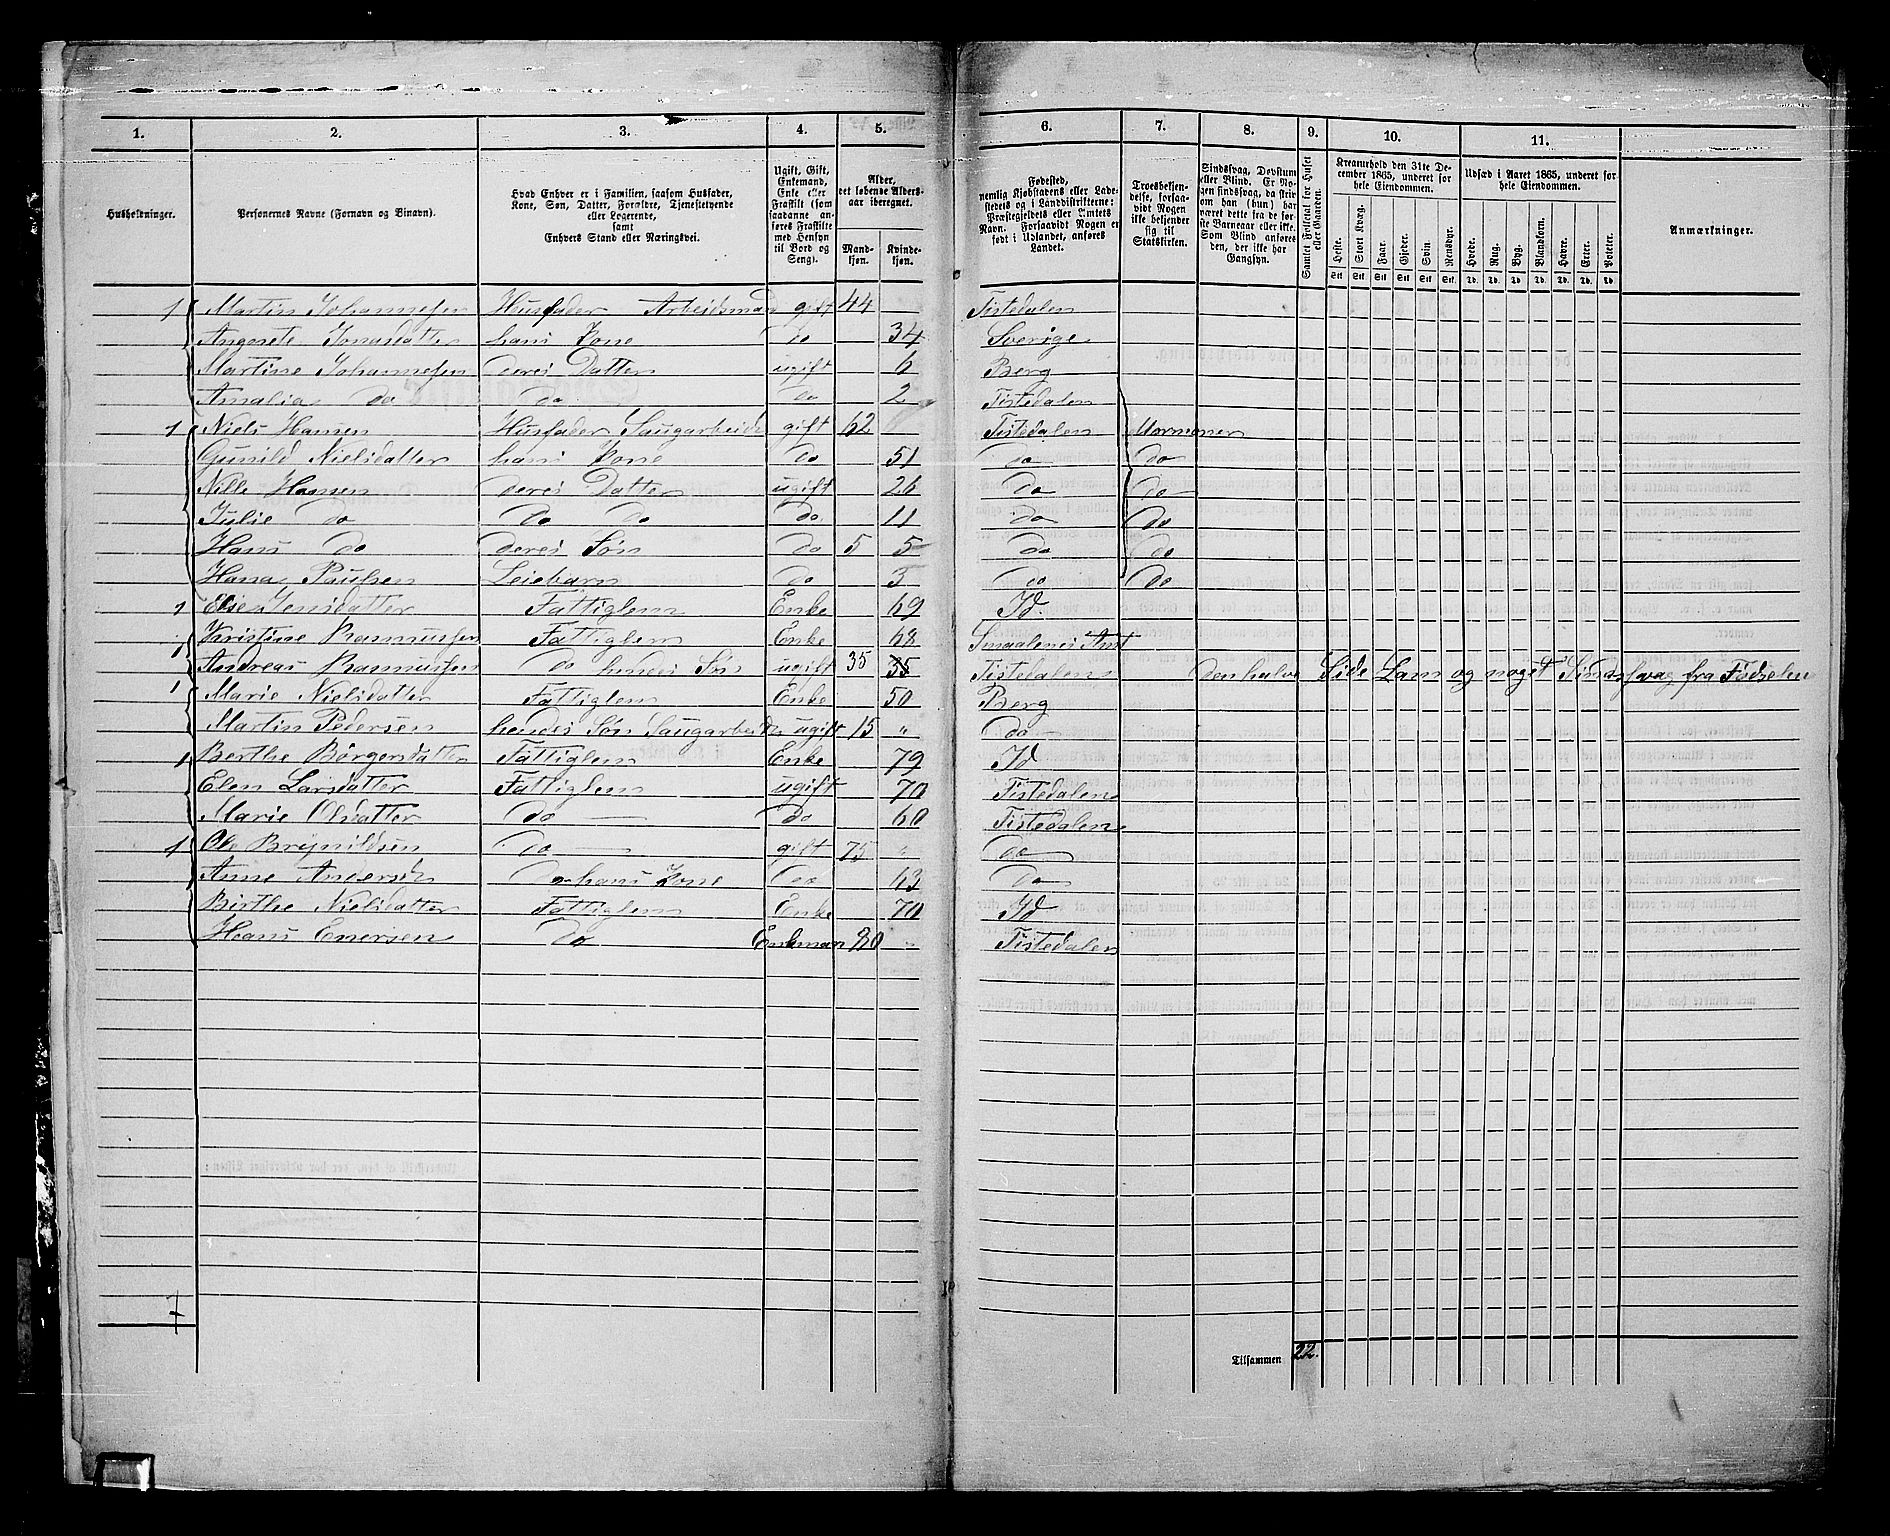 1. 2. 3. 4. 5. 6. 7. 8. 9. 10. 11.
Husholdninger.
Personernes Navne (Fornavn og Binavn).
Hvad Enhver er i Familien, saasom Husfader, Kone, Søn, Datter, Forældre, Tjenestetyende eller Logerende, samt Enhvers Stand eller Næringsvei.
Ugift, Gift, Enkemand, Enke eller Fraskilt (som saadanne anføres Fraskilte med Hensyn til Bord og Seng).
Alder, det løbende Alders-aar iberegnet.
Mand-kjøn. Kvinde-kjøn.
Fødested, nemlig Kjøbstadens eller Ladestedets og i Landdistrikterne: Præstegjeldets eller Amtets Navn. Forsaavidt Nogen er født i Udlandet, anføres Landet.
Troesbekjendelse, forsaavidt Nogen ikke bekjender sig til Statskirken.
Sindssvag, Døvstum eller Blind. Er Nogen sindssvag, da skriver om han (hun) har været dette fra de første Barneaar eller ikke. Som Blind anføres den, der ikke har Gangsyn.
Samlet Folketal for Huset eller Gaarden.
Kreaturhold den 31te December 1865, underet for hele Eiendommen.
Heste. Stort Kvæg. Faar. Gjeder. Svin. Rensdyr.
Udsæd i Aaret 1865, underet for hele Eiendommen.
Hvede. Rug. Byg. Blandkorn. Havre. Erter. Poteter.
Anmærkninger.
Stk Stk Stk Stk Stk Stk Td. Td. Td. Td. Td. Td. Td.
1 Martin Johannesen Husfader Arbeidsmand gift 44 Tistedalen
Jonasdatter hans Kone do 34 Sverige
Martine Johannesen deres Datter ugift 6 Berg
Amalia do do do 2 Tistedalen
1 Niels Hansen Husfader Saugarbeider gift 62 Tistedalen Mormoner
Gunild Nielsdatter hans Kone do 51 do do
Nille Hansen deres Datter ugift 26 do do
Julie do do do do 11 do do
Hans do deres Søn do 5 5 do do
Hana Paulsen Leiebarn do 5 do do
1 Else Jensdatter Fattiglem Enke 69 Id
1 Kristine Rasmussen Fattiglem Enke 68 Smaalenes Amt
Andreas Rasmussen do hendes Søn ugift 35 35 Tistedalen den halve Side Lam og noget Sindssvag fra Fødselen
1 Marie Nielsdatter Fattiglem Enke 50 Berg
Martin Pedersen hendes Søn Saugarbeider ugift 15 " do
1 Berthe Børgersdatter Fattiglem Enke 79 Id
Elen Larsdatter Fattiglem ugift 70 Tistedalen
Marie Olsdatter do do 60 Tistedalen
1 Ole Brynildsen do gift 75 " do
Anne Andersdt do hans Kone do 63 do
Birthe Nielsdatter Fattiglem Enke 70 Id
Hans Enersen do Enkman 80 " Tistedalen
7
Tilsammen 22.